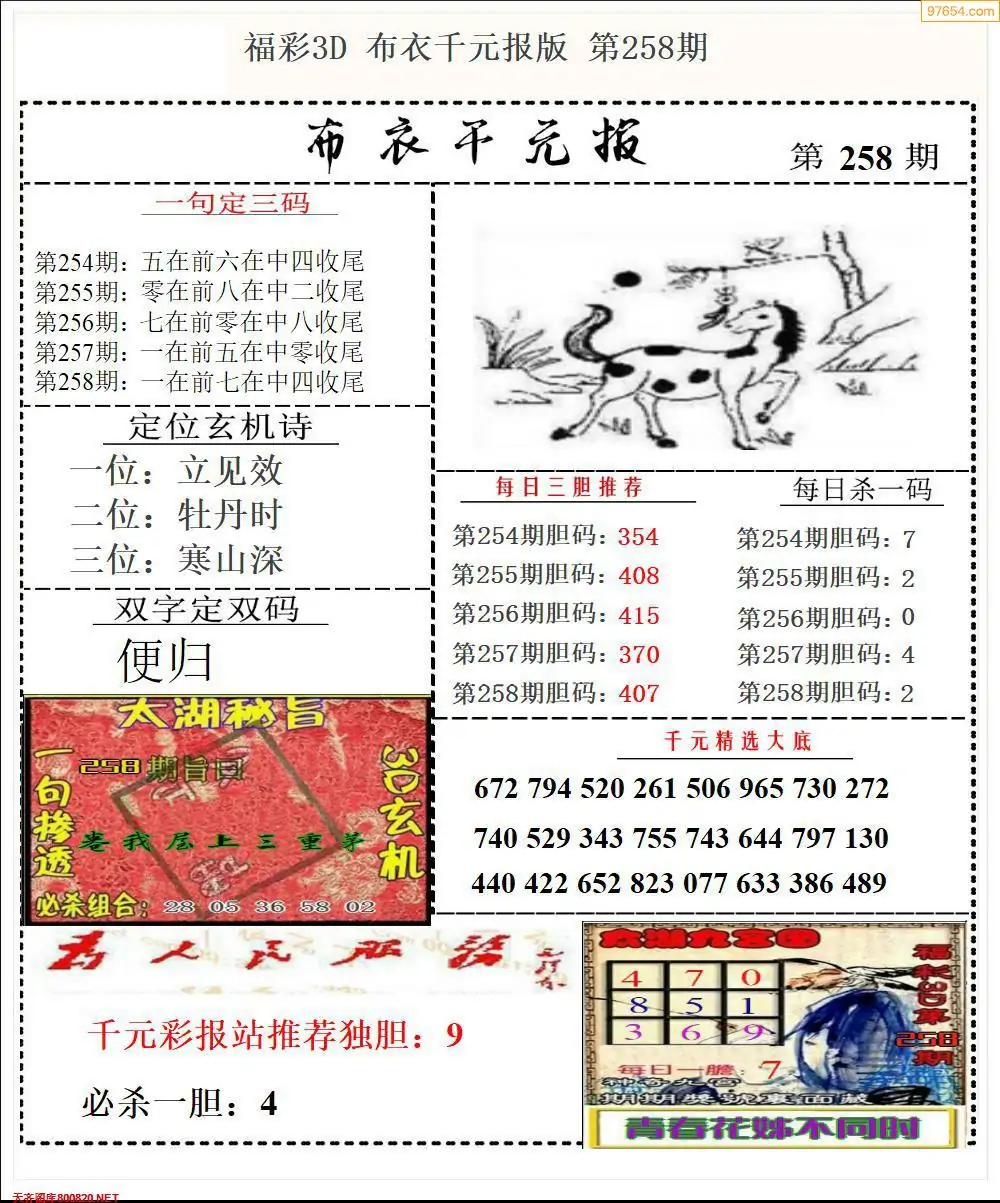 97654.com
福彩3D 布衣千元报版 第258期
布衣千元报
第 258 期
一句定三码
第254期：五在前六在中四收尾
第255期：零在前八在中二收尾
第256期：七在前零在中八收尾
第257期：一在前五在中零收尾
第258期：一在前七在中四收尾
定位玄机诗
一位：立见效
二位：牡丹时
三位：寒山深
双字定双码
便归
太湖秘旨
一句掺透
258期旨曰
3D玄机
卷我屋上三重茅
必杀组合：28 05 36 58 02
每日三胆推荐
第254期胆码：354
第255期胆码：408
第256期胆码：415
第257期胆码：370
第258期胆码：407
每日杀一码
第254期胆码：7
第255期胆码：2
第256期胆码：0
第257期胆码：4
第258期胆码：2
千元精选大底
672 794 520 261 506 965 730 272
740 529 343 755 743 644 797 130
440 422 652 823 077 633 386 489
为人民服务
千元彩报站推荐独胆：9
必杀一胆：4
太湖九宫图
福彩3D第258期
4 7 0
8 5 1
3 6 9
每日一膽：7
神奇九宫
期期奖號裏面藏
青春花姊不同时
天齐图库800820.NET